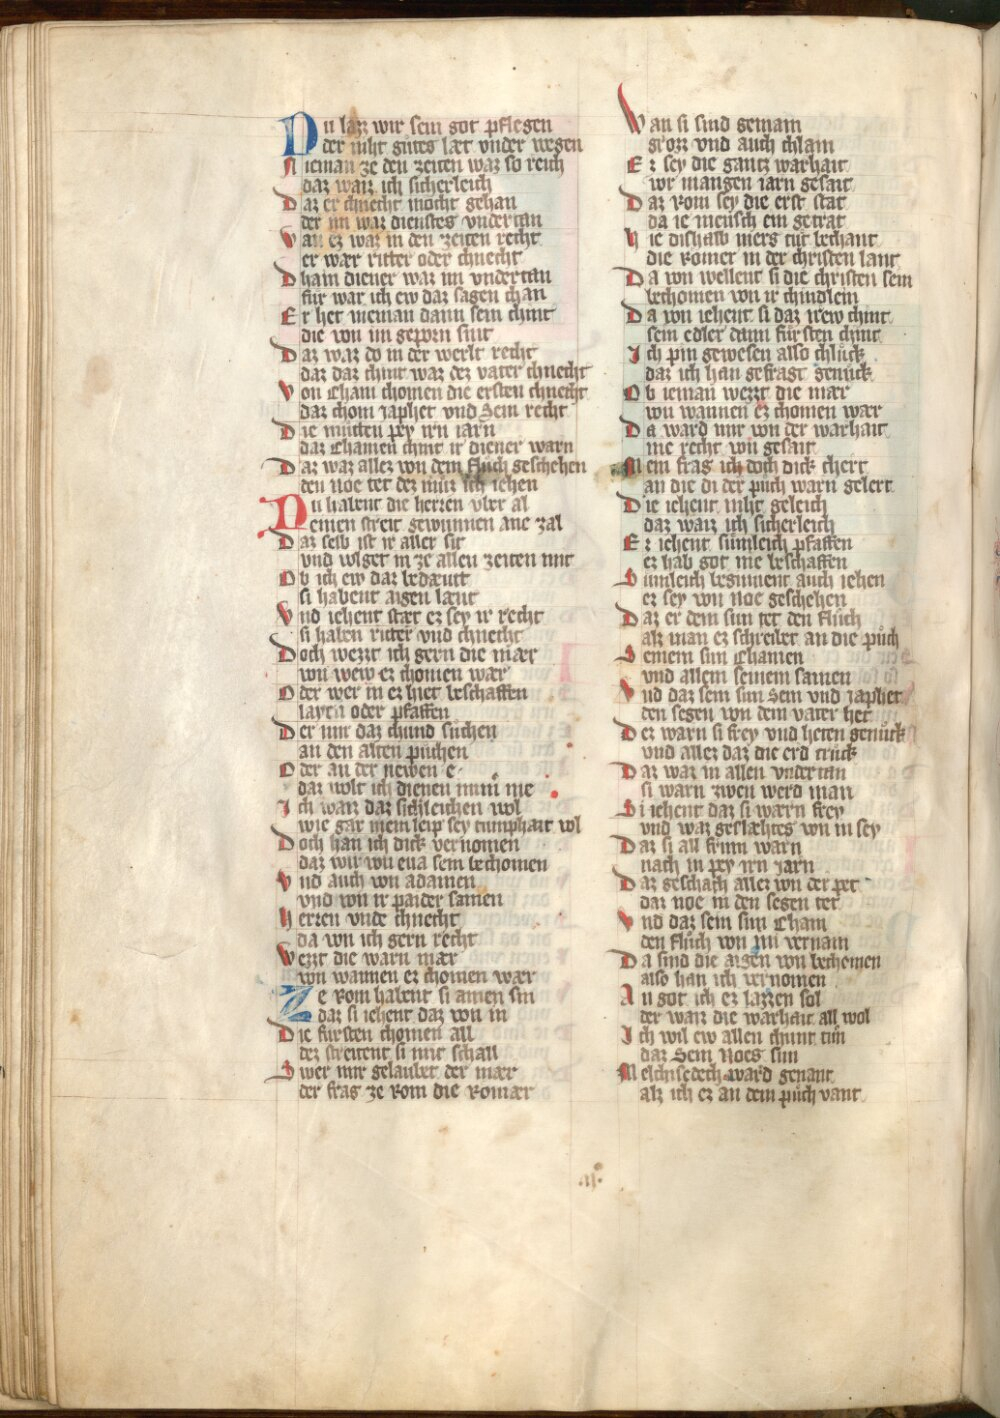 Nu lazz wir sein got pflegen
der niht gůtes læt vnder wegen
Nieman ze den zeiten waz so reich
daz waiz ich sicherleich
Daz er chnecht mocht gehan
der im war dienstes vndertan
Van ez waz in den zeiten recht
er wær ritter oder chnecht
Dhain diener waz im vndertan
fur war ich ew daz sagen chan
Er het nieman dann sein chint
die von im geporn sint
Daz waz do in der werlt recht
daz daz chint waz dez vater chnecht
Von Cham chomen die ersten chnecht
daz chom Japhet vnd Sem recht
Die mutten pey irn iarn
daz Chamen chint ir diener warn
Daz waz allez von dem fluch geschehen
den noe tet dez muz ich iehen
Nu habent die herren vber al
einen streit gewunnen ane zal
Daz selb ist ir aller sit
vnd volget in ze allen zeiten mit
Ob ich ew daz bedæut
si habent aigen læut
Vnd iehent stæt ez sey ir recht
si haben ritter vnd chnecht
Doch wezzt ich gern die mær
von wew ez chomen wær
Oder wer in ez hiet beschaffen
layen oder pfaffen
Der mir daz chund suchen
an den alten puchen
Oder an der newen e
daz wolt ich dienen immer me
Ich waiz daz sichleichen wol
wie gar mein leip sey tumphait vol
Doch han ich dick vernomen
daz wir von eua sein bechomen
Vnd auch von adamen
vnd von ir paider samen
Herren vnde chnecht
da von ich gern recht
Wezzt die warn mær
von wannen ez chomen wær
Ze Rom habent si ainen sin
daz si iehent daz von in
Die fürsten chomen all
dez streitent si mit schall
Swer mir gelaubet der mær
der frag ze Rom die Romær
Wan si sind gemain
grozz vnd auch chlain
Er sey die gantz warhait
vor mangen iarn gesait
Daz Rom sey die erst stat
da ie mensch ein getrat
Hie dishalb mers tůt bechant
die Romer in der christen lant
Da von wellent si die christen sein
bechomen von ir chindlein
Da von iehent si daz irew chint
sein edler dann fürsten chint
Ich pin gewesen also chlůck
daz ich han gefragt genůck
Ob ieman wezzt die mær
von wannen ez chomen wær
Da ward mir von der warhait
nie recht von gesait
Mein frag ich doch dick chert
an die di der půch warn gelert
Die iehent niht geleich
daz waiz ich sicherleich
Er iehent sumleich pfaffen
ez hab got nie beschaffen
Sumleich begunnent auch iehen
ez sey von noe geschehen
Daz er dem sun tet den flůch
alz man ez schreibet an die půch
Seinem sun Chamen
vnd allem seinem samen
Vnd daz sein sun Sem vnd Japhet
den segen von dem vater het
Dez warn si frey vnd heten genůck
vnd allez daz die erd trůck
Daz waz in allen vndertan
si warn zwen werd man
Si iehent daz si warn frey
vnd waz geslæhtes von in sey
Daz si all frum warn
nach in pey irn iarn
Daz geschach allez von der pet
daz noe in den segen tet
Vnd daz sein sun Cham
den flůch von im vernam
Da sind die aigen von bechomen
also han ich vernomen
An got ich ez lazzen sol
der waiz die warhait all wol
Ich wil ew allen chunt tůn
daz Sem Noes sun
Melchisedech ward genant
alz ich ez an dem půch vant